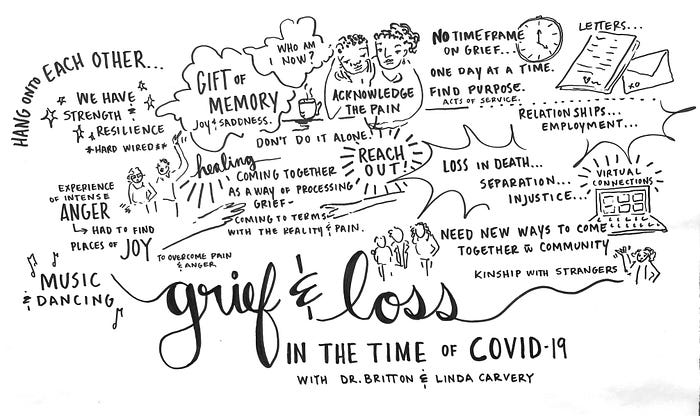 HANG ONTO EACH OTHER...
WE HAVE
STRENGTH &
RESILIENCE
*HARD WIRED**
GIFT OF
MEMORY
JOY & SADDNESS.
WHO AM
I NOW?
ACKNOWLEDGE
THE PAIN
NO TIMEFRAME
ON GRIEF...
ONE DAY AT A TIME.
FIND PURPOSE.
ACTS OF SERVICE.
LETTERS...
XO
DON'T DO IT ALONE!
REACH
OUT!
healing
COMING TOGETHER
AS A WAY OF PROCESSING
GRIEF-
COMING TO TERMS
WITH THE REALITY & PAIN.
RELATIONSHIPS...
EMPLOYMENT...
LOSS IN DEATH...
SEPARATION...
INJUSTICE...
VIRTUAL
CONNECTIONS
EXPERIENCE
OF INTENSE
ANGER
HAD TO FIND
PLACES OF JOY
TO OVERCOME PAIN
& ANGER
NEED NEW WAYS TO COME
TOGETHER W COMMUNITY
KINSHIP WITH STRANGERS
MUSIC
& DANCING
grief & loss
IN THE TIME OF COVID-19
WITH DR. BRITTON & LINDA CARVERY